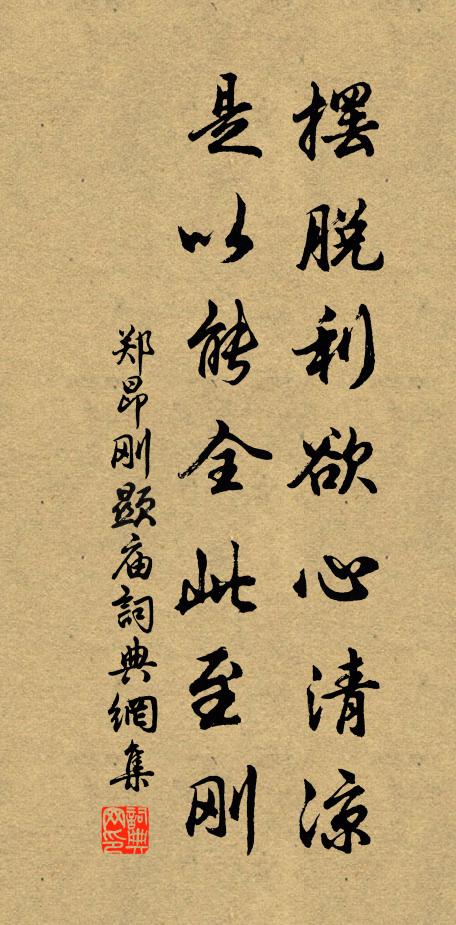 摆脱利欲心清凉
是以能全此至刚
郑昂刚显庙詞典網集
詞典网印